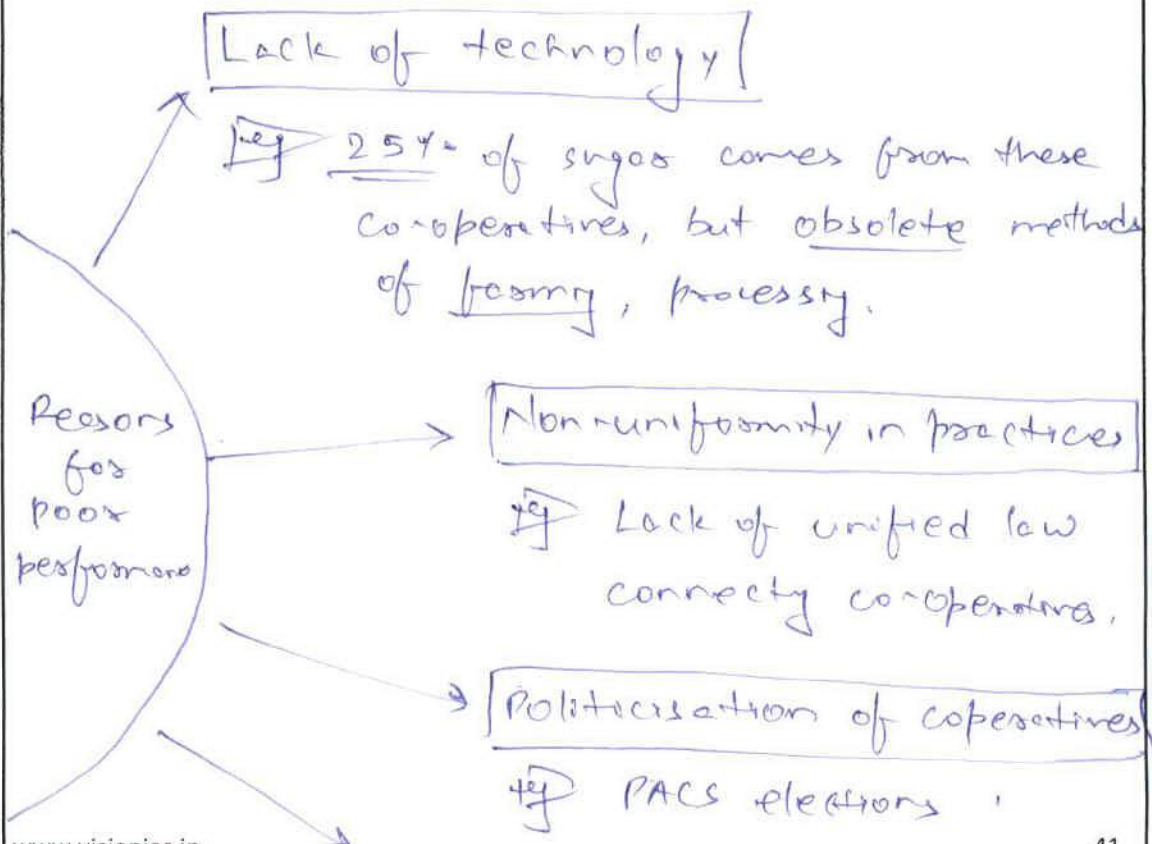 Lack of technology
eg 25% of sugar comes from these
co-operatives, but obsolete methods
of farming, processing.
Reasons
for
poor
performance
Non-uniformity in practices
eg Lack of unified law
connecting co-operatives.
Politicisation of coperatives
eg PACS elections.
41